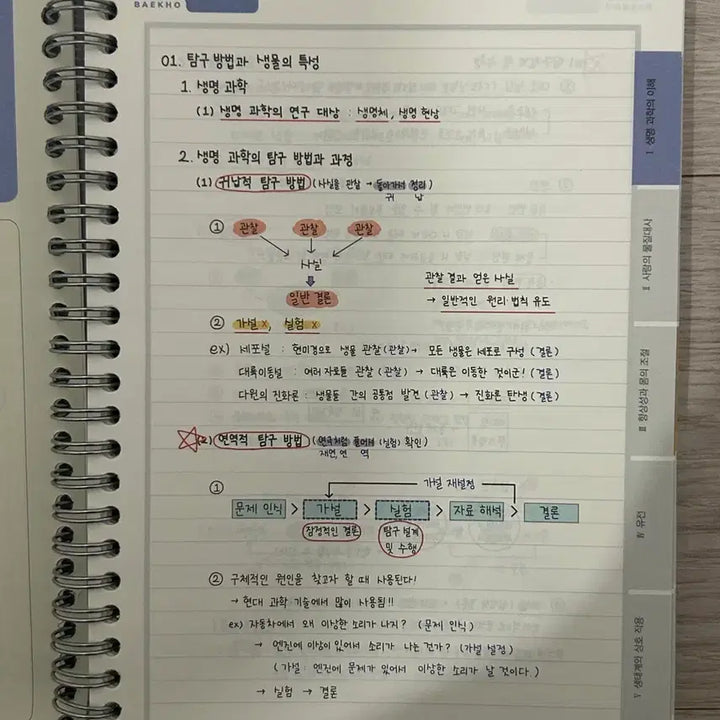 BAEKHO
01. 탐구 방법과 생물의 특성
1. 생명 과학
(1) 생명 과학의 연구 대상 : 생명체, 생명 현상
2. 생명 과학의 탐구 방법과 과정
(1) 귀납적 탐구 방법 (사실을 관찰 → 돌아가서 정리)
귀 납
① 관찰 관찰 관찰
사실
일반 결론
관찰 결과 얻은 사실
→ 일반적인 원리·법칙 유도
② 가설 x, 실험 x
ex) 세포설 : 현미경으로 생물 관찰 (관찰) → 모든 생물은 세포로 구성 (결론)
대륙이동설 : 여러 자료들 관찰 (관찰) → 대륙은 이동한 것이군! (결론)
다윈의 진화론 : 생물들 간의 공통점 발견 (관찰) → 진화론 탄생 (결론)
(2) 연역적 탐구 방법 (풀어서 (실험) 확인)
역
① 가설 재설정
문제 인식 > 가설 > 실험 > 자료 해석 > 결론
잠정적인 결론
탐구 설계
및 수행
② 구체적인 원인을 찾고자 할 때 사용된다!
→ 현대 과학 기술에서 많이 사용됨!!
ex) 자동차에서 왜 이상한 소리가 나지? (문제 인식)
→ 엔진에 이상이 있어서 소리가 나는건가? (가설 설정)
(가설 : 엔진에 문제가 있어서 이상한 소리가 날 것이다.)
→ 실험 → 결론
I 생명 과학의 이해
II 사람의 물질대사
III 항상성과 몸의 조절
IV 유전
V 생태계와 상호 작용